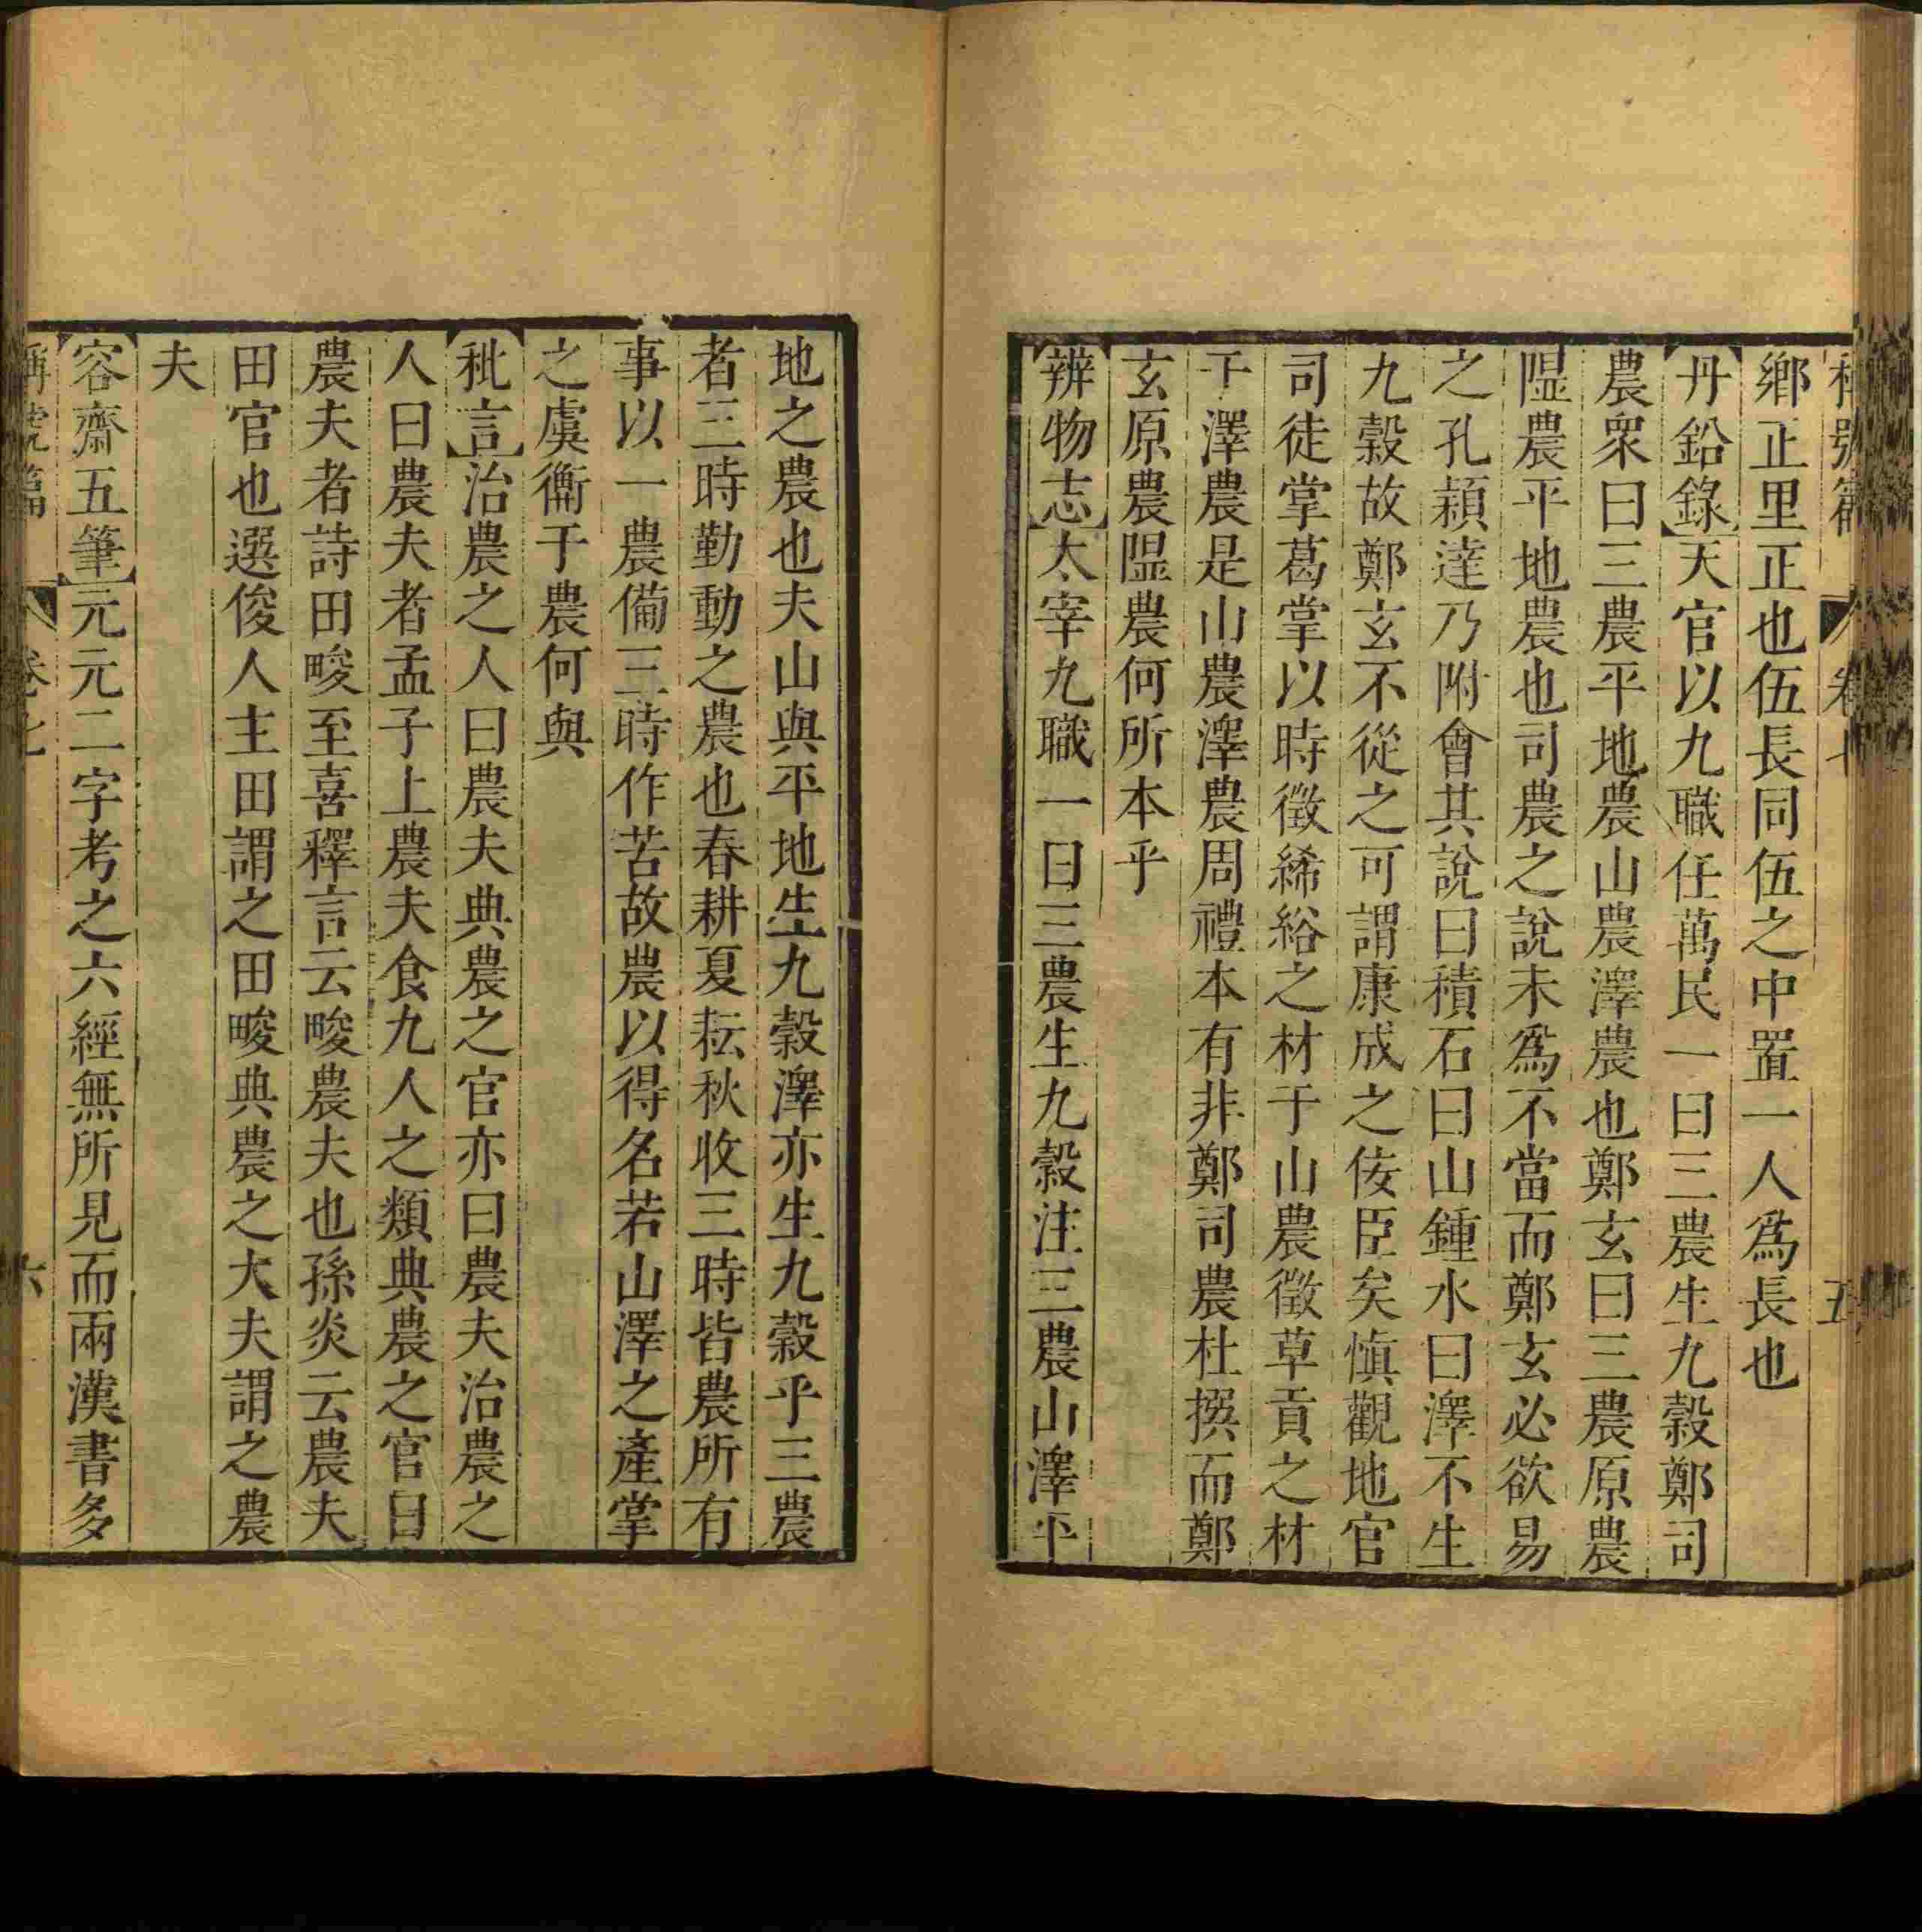 稱號篇 卷七 五
鄉正里正也伍長同伍之中置一人爲長也
【丹鉛錄】天官以九職任萬民一曰三農生九穀鄭司
農衆曰三農平地農山農澤農也鄭玄曰三農原農
隰農平地農也司農之說未爲不當而鄭玄必欲易
之孔穎達乃附會其說曰積石曰山鍾水曰澤不生
九穀故鄭玄不從之可謂康成之佞臣矣愼觀地官
司徒掌葛掌以時徵絺綌之材于山農徵草貢之材
于澤農是山農澤農周禮本有非鄭司農杜撰而鄭
玄原農隰農何所本乎
【辨物志】大宰九職一曰三農生九穀注三農山澤平
地之農也夫山與平地生九穀澤亦生九穀乎三農
者三時勤動之農也春耕夏耘秋收三時皆農所有
事以一農備三時作苦故農以得名若山澤之產掌
之虞衡于農何與
【秕言】治農之人曰農夫典農之官亦曰農夫治農之
人曰農夫者孟子上農夫食九人之類典農之官曰
農夫者詩田畯至喜釋言云畯農夫也孫炎云農夫
田官也選俊人主田謂之田畯典農之大夫謂之農
夫
【容齋五筆】元元二字考之六經無所見而兩漢書多
稱號篇 卷七 六